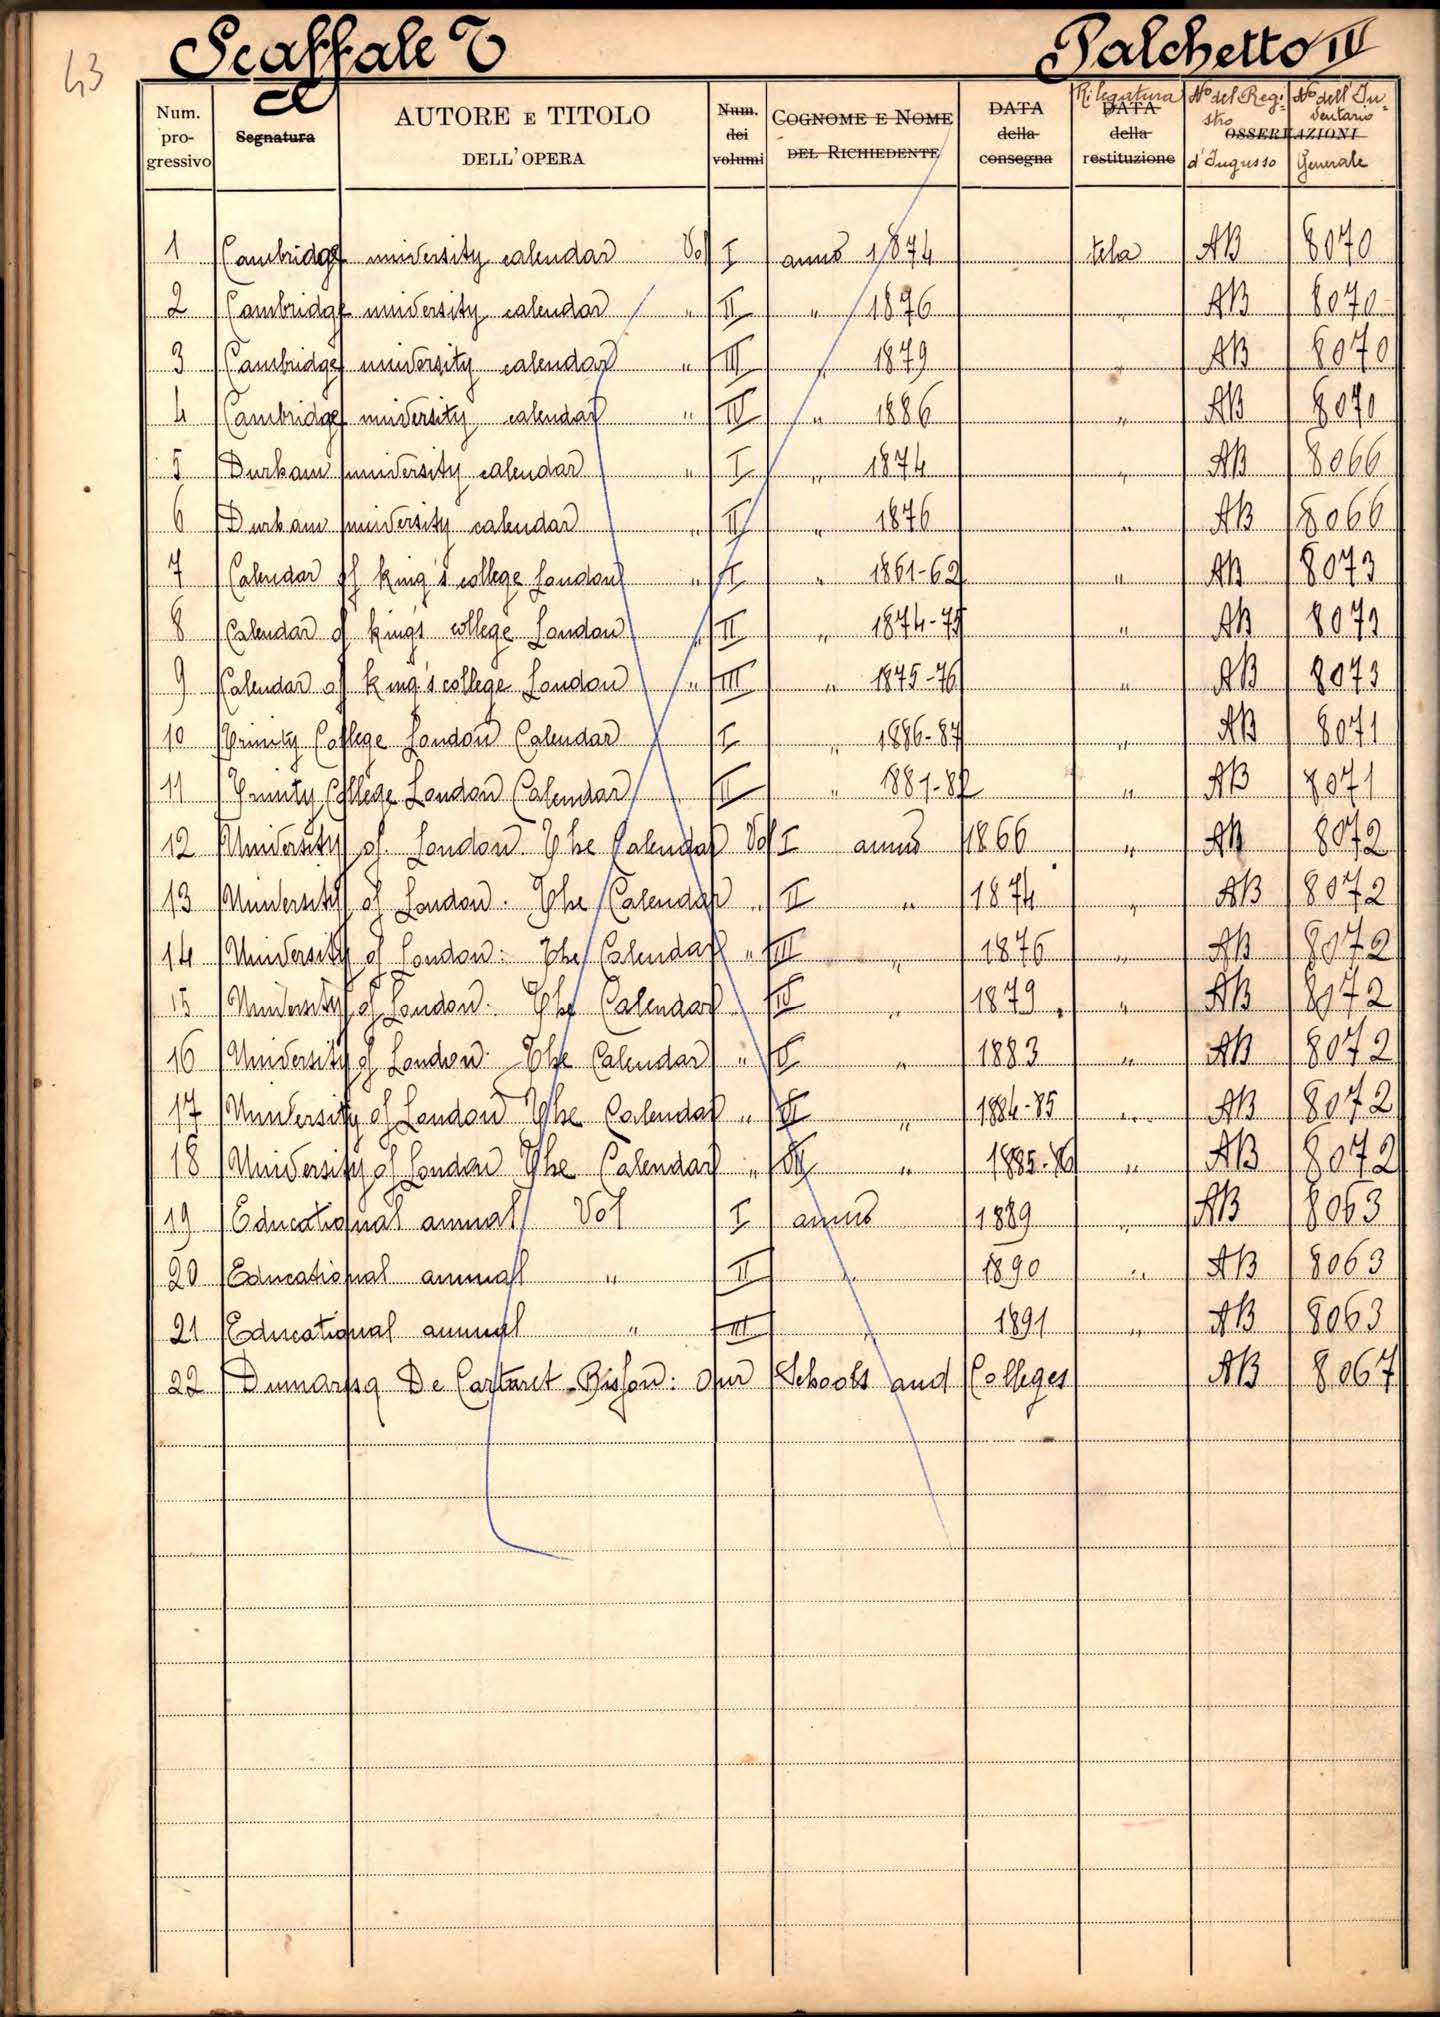 43
Scaffale T Palchetto IV
Num. progressivo Segnatura AUTORE E TITOLO DELL'OPERA Num. dei volumi COGNOME E NOME DEL RICHIEDENTE DATA della consegna Rilegatura DATA della restituzione No del Registro d'Ingresso No dell'Inventario Generale OSSERVAZIONI
1 Cambridge university calendar Vol I anno 1874 tela AB 8070
2 Cambridge university calendar " II " 1876 " AB 8070
3 Cambridge university calendar " III " 1879 " AB 8070
4 Cambridge university calendar " IV " 1886 " AB 8070
5 Durham university calendar " I " 1874 " AB 8066
6 Durham university calendar " II " 1876 " AB 8066
7 Calendar of king's college London " I " 1861-62 " AB 8073
8 Calendar of king's college London " II " 1874-75 " AB 8073
9 Calendar of king's college London " III " 1875-76 " AB 8073
10 Trinity College London Calendar I " 1886-87 " AB 8071
11 Trinity College London Calendar II " 1881-82 " AB 8071
12 University of London. The Calendar Vol I anno 1866 " AB 8072
13 University of London. The Calendar " II " 1874 " AB 8072
14 University of London: The Calendar " III " 1876 " AB 8072
15 University of London. The Calendar IV " 1879 " AB 8072
16 University of London. The Calendar " V " 1883 " AB 8072
17 University of London The Calendar " VI " 1884-85 " AB 8072
18 University of London The Calendar " VII " 1885-86 " AB 8072
19 Educational annual Vol I anno 1889 " AB 8063
20 Educational annual " II " 1890 " AB 8063
21 Educational annual " III " 1891 " AB 8063
22 De Carteret-Bisson: Our Schools and Colleges AB 8067